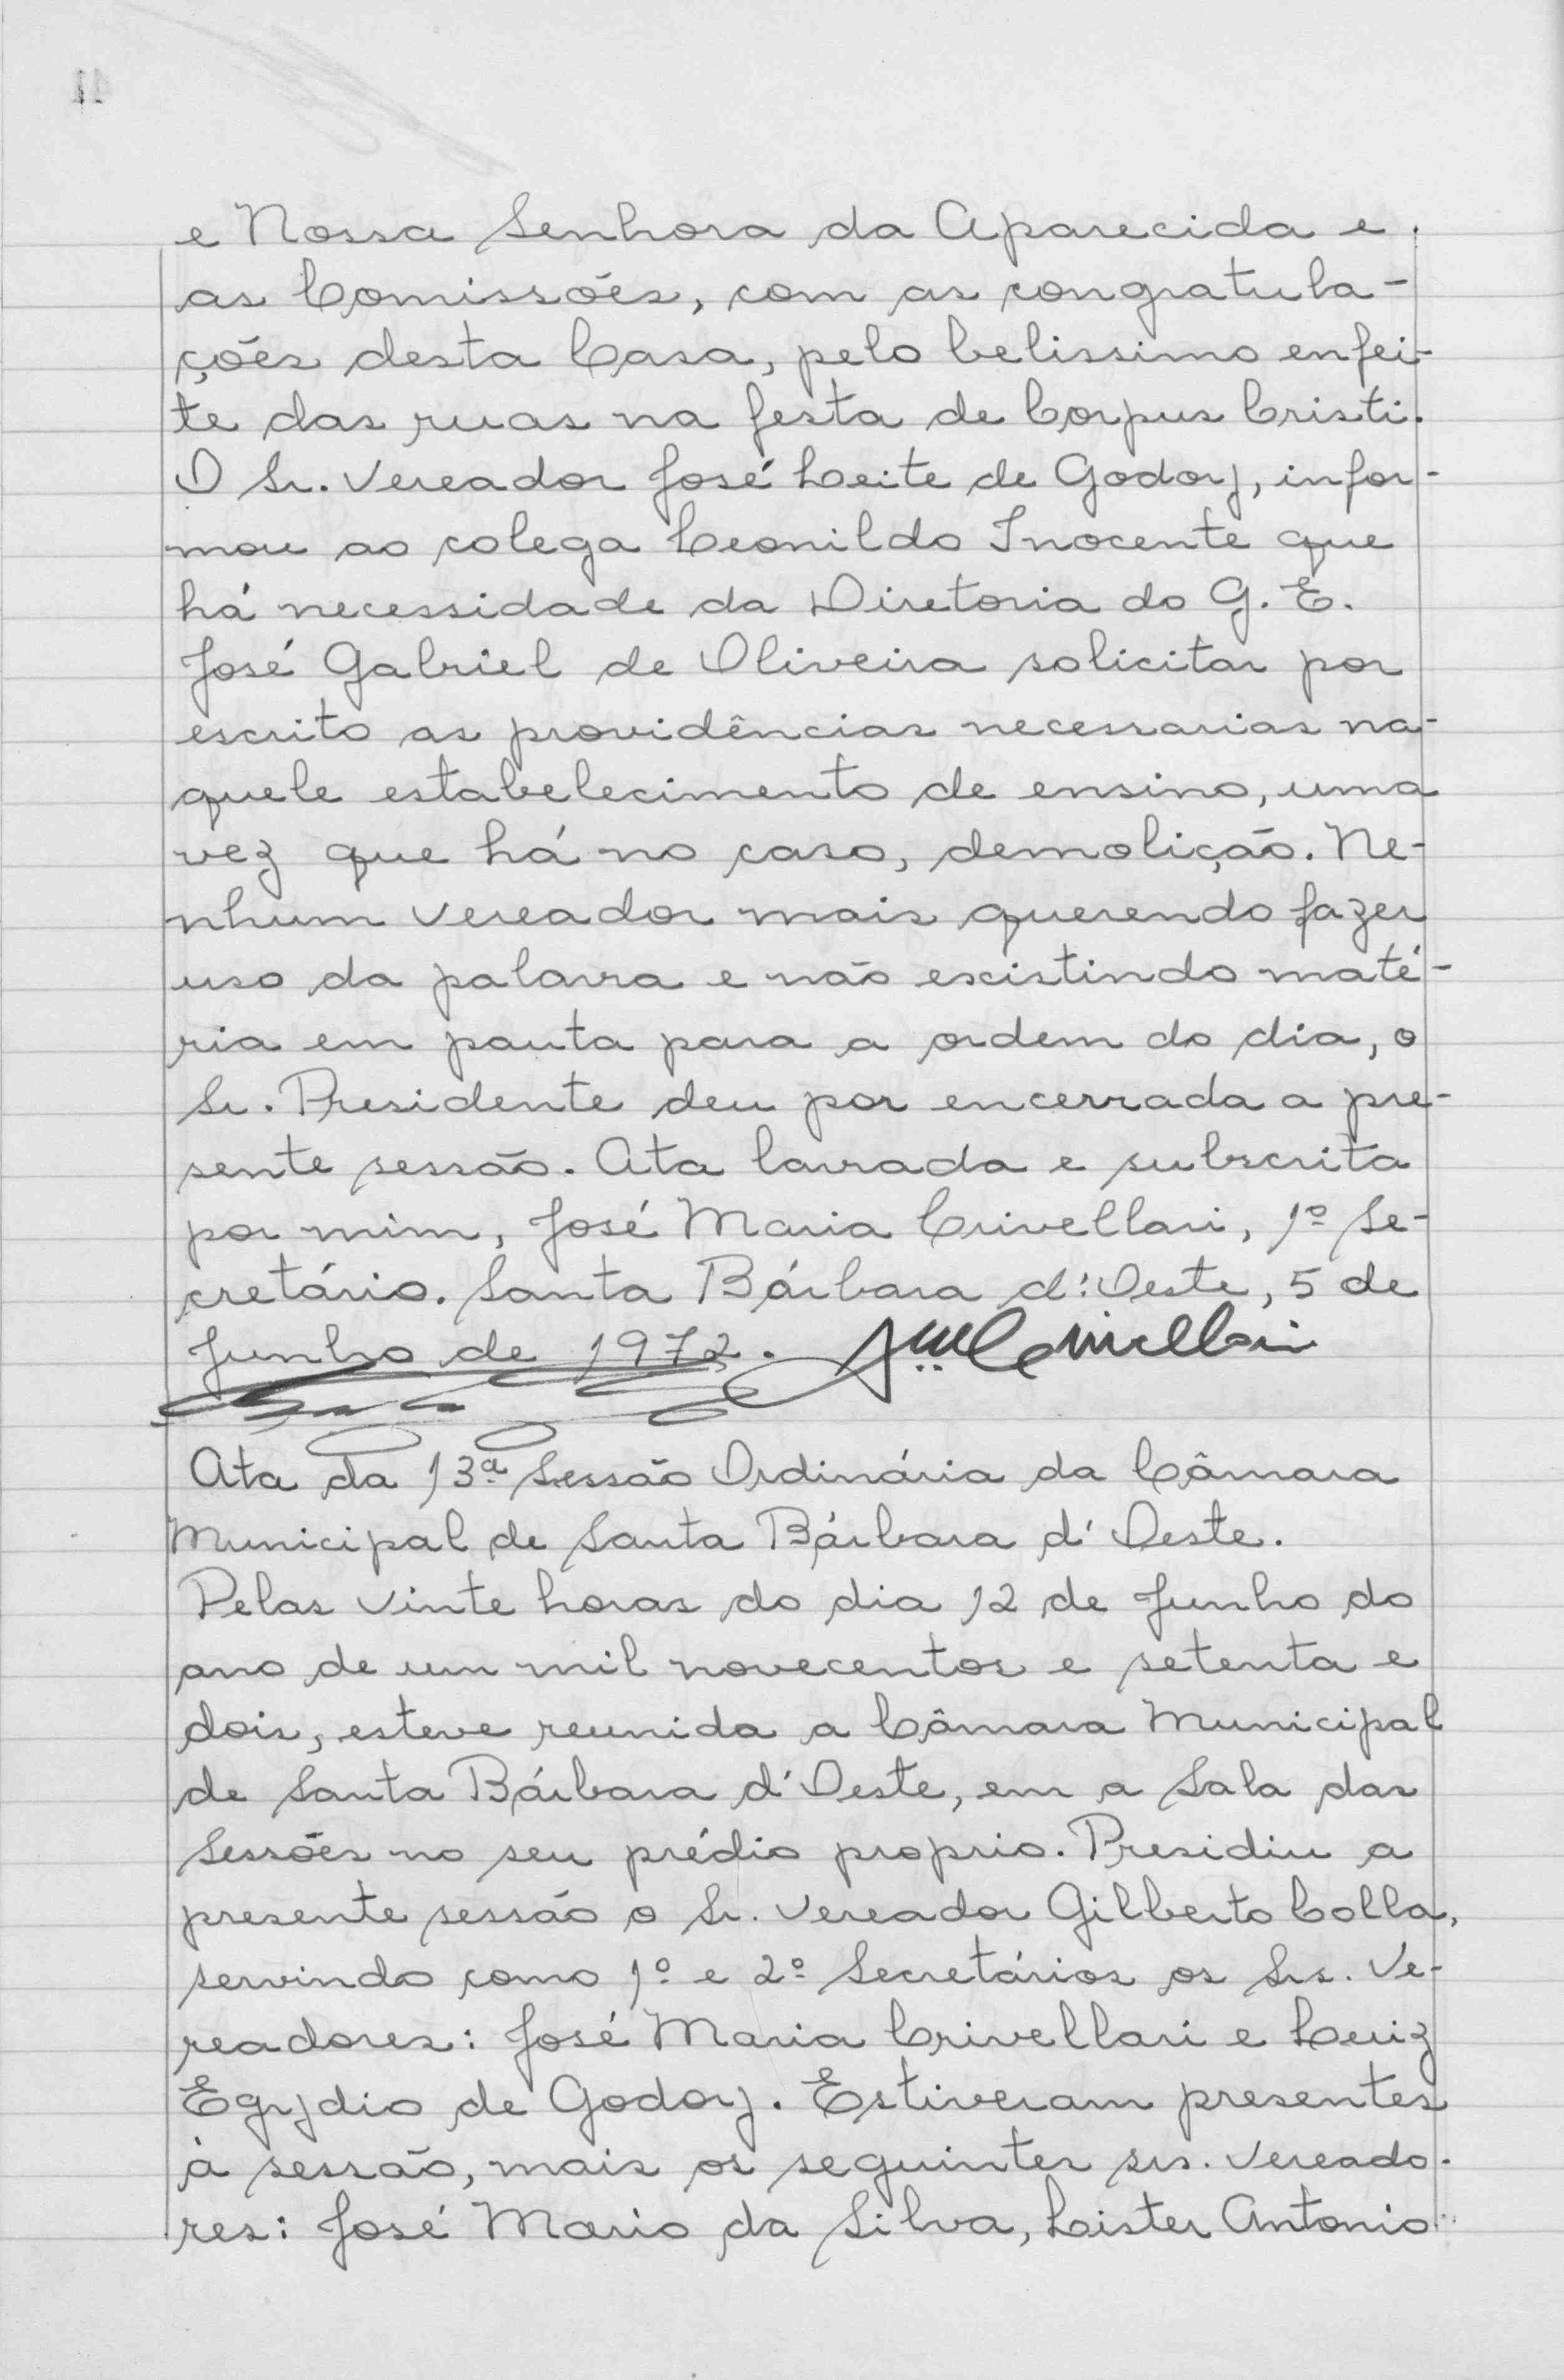 e Nossa Senhora da Aparecida e
as Comissões, com as congratula-
ções desta Casa, pelo belissimo enfei-
te das ruas na festa de Corpus Cristi.
O Sr. Vereador José Leite de Godoy, infor-
mou ao colega Leonildo Inocente que
há necessidade da Diretoria do G. E.
José Gabriel de Oliveira solicitar por
escrito as providências necessarias na-
quele estabelecimento de ensino, uma
vez que há no caso, demolição. Ne-
nhum vereador mais querendo fazer
uso da palavra e não existindo maté-
ria em pauta para a ordem do dia, o
Sr. Presidente deu por encerrada a pre-
sente sessão. Ata lavrada e subscrita
por mim, José Maria Crivellari, 1º Se-
cretário. Santa Bárbara d'Oeste, 5 de
Junho de 1972. JMCrivellari
Ata da 13ª Sessão Ordinária da Câmara
Municipal de Santa Bárbara d'Oeste.
Pelas vinte horas do dia 12 de Junho do
ano de um mil novecentos e setenta e
dois, esteve reunida a Câmara Municipal
de Santa Bárbara d'Oeste, em a Sala das
Sessões no seu prédio proprio. Presidiu a
presente sessão o Sr. Vereador Gilberto Colla,
servindo como 1º e 2º Secretários os Srs. Ve-
readores: José Maria Crivellari e Luiz
Egydio de Godoy. Estiveram presentes
à sessão, mais os seguintes srs. Vereado-
res: José Mario da Silva, Lister Antonio